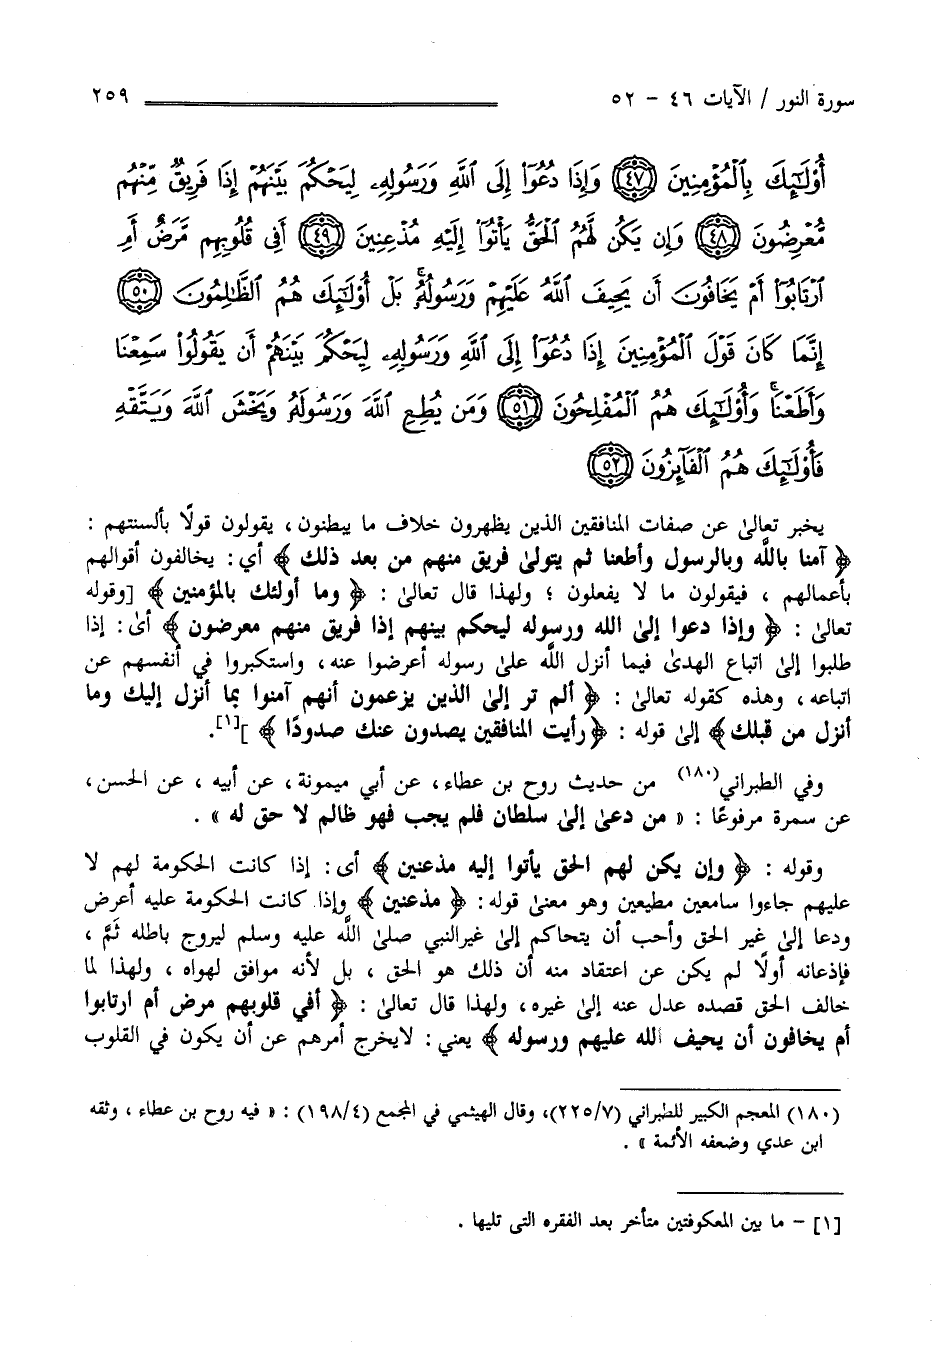 سورة النور / الآيات ٤٦ – ٥٢ ٢٥٩
أُوْلَٰٓئِكَ بِٱلْمُؤْمِنِينَ ٤٧ وَإِذَا دُعُوٓا۟ إِلَى ٱللَّهِ وَرَسُولِهِۦ لِيَحْكُمَ بَيْنَهُمْ إِذَا فَرِيقٌ مِّنْهُم
مُّعْرِضُونَ ٤٨ وَإِن يَكُن لَّهُمُ ٱلْحَقُّ يَأْتُوٓا۟ إِلَيْهِ مُذْعِنِينَ ٤٩ أَفِى قُلُوبِهِم مَّرَضٌ أَمِ
ٱرْتَابُوٓا۟ أَمْ يَخَافُونَ أَن يَحِيفَ ٱللَّهُ عَلَيْهِمْ وَرَسُولُهُۥ ۚ بَلْ أُو۟لَٰٓئِكَ هُمُ ٱلظَّٰلِمُونَ ٥٠
إِنَّمَا كَانَ قَوْلَ ٱلْمُؤْمِنِينَ إِذَا دُعُوٓا۟ إِلَى ٱللَّهِ وَرَسُولِهِۦ لِيَحْكُمَ بَيْنَهُمْ أَن يَقُولُوا۟ سَمِعْنَا
وَأَطَعْنَا ۚ وَأُو۟لَٰٓئِكَ هُمُ ٱلْمُفْلِحُونَ ٥١ وَمَن يُطِعِ ٱللَّهَ وَرَسُولَهُۥ وَيَخْشَ ٱللَّهَ وَيَتَّقْهِ
فَأُو۟لَٰٓئِكَ هُمُ ٱلْفَآئِزُونَ ٥٢
يخبر تعالىٰ عن صفات المنافقين الذين يظهرون خلاف ما يبطنون، يقولون قولًا بألسنتهم :
﴿ آمنا باللَّه وبالرسول وأطعنا ثم يتولىٰ فريق منهم من بعد ذلك ﴾ أي: يخالفون أقوالهم
بأعمالهم ، فيقولون ما لا يفعلون ؛ ولهذا قال تعالىٰ : ﴿ وما أولئك بالمؤمنين ﴾ [وقوله
تعالىٰ : ﴿ وإذا دعوا إلىٰ الله ورسوله ليحكم بينهم إذا فريق منهم معرضون ﴾ أى: إذا
طلبوا إلىٰ اتباع الهدىٰ فيما أنزل اللَّه علىٰ رسوله أعرضوا عنه، واستكبروا في أنفسهم عن
اتباعه ، وهذه كقوله تعالىٰ : ﴿ ألم تر إلىٰ الذين يزعمون أنهم آمنوا بما أنزل إليك وما
أنزل من قبلك﴾ إلىٰ قوله : ﴿رأيت المنافقين يصدون عنك صدودًا ﴾ ][١].
وفي الطبراني(١٨٠) من حديث روح بن عطاء، عن أبي ميمونة، عن أبيه ، عن الحسن،
عن سمرة مرفوعًا : « من دعىٰ إلىٰ سلطان فلم يجب فهو ظالم لا حق له » .
وقوله : ﴿ وإن يكن لهم الحق يأتوا إليه مذعنين ﴾ أى: إذا كانت الحكومة لهم لا
عليهم جاءوا سامعين مطيعين وهو معنىٰ قوله: ﴿ مذعنين ﴾ وإذا كانت الحكومة عليه أعرض
ودعا إلىٰ غير الحق وأحب أن يتحاكم إلىٰ غيرالنبي صلىٰ اللَّه عليه وسلم ليروج باطله ثَمَّ ،
فإذعانه أولًا لم يكن عن اعتقاد منه أن ذلك هو الحق ، بل لأنه موافق لهواه ، ولهذا لما
خالف الحق قصده عدل عنه إلىٰ غيره، ولهذا قال تعالىٰ : ﴿ أفي قلوبهم مرض أم ارتابوا
أم يخافون أن يحيف الله عليهم ورسوله ﴾ يعني : لايخرج أمرهم عن أن يكون في القلوب
(١٨٠) المعجم الكبير للطبراني (٢٢٥/٧)، وقال الهيثمي في المجمع (١٩٨/٤) : « فيه روح بن عطاء ، وثقه
ابن عدي وضعفه الأئمة » .
[١] – ما بين المعكوفتين متأخر بعد الفقره التى تليها .